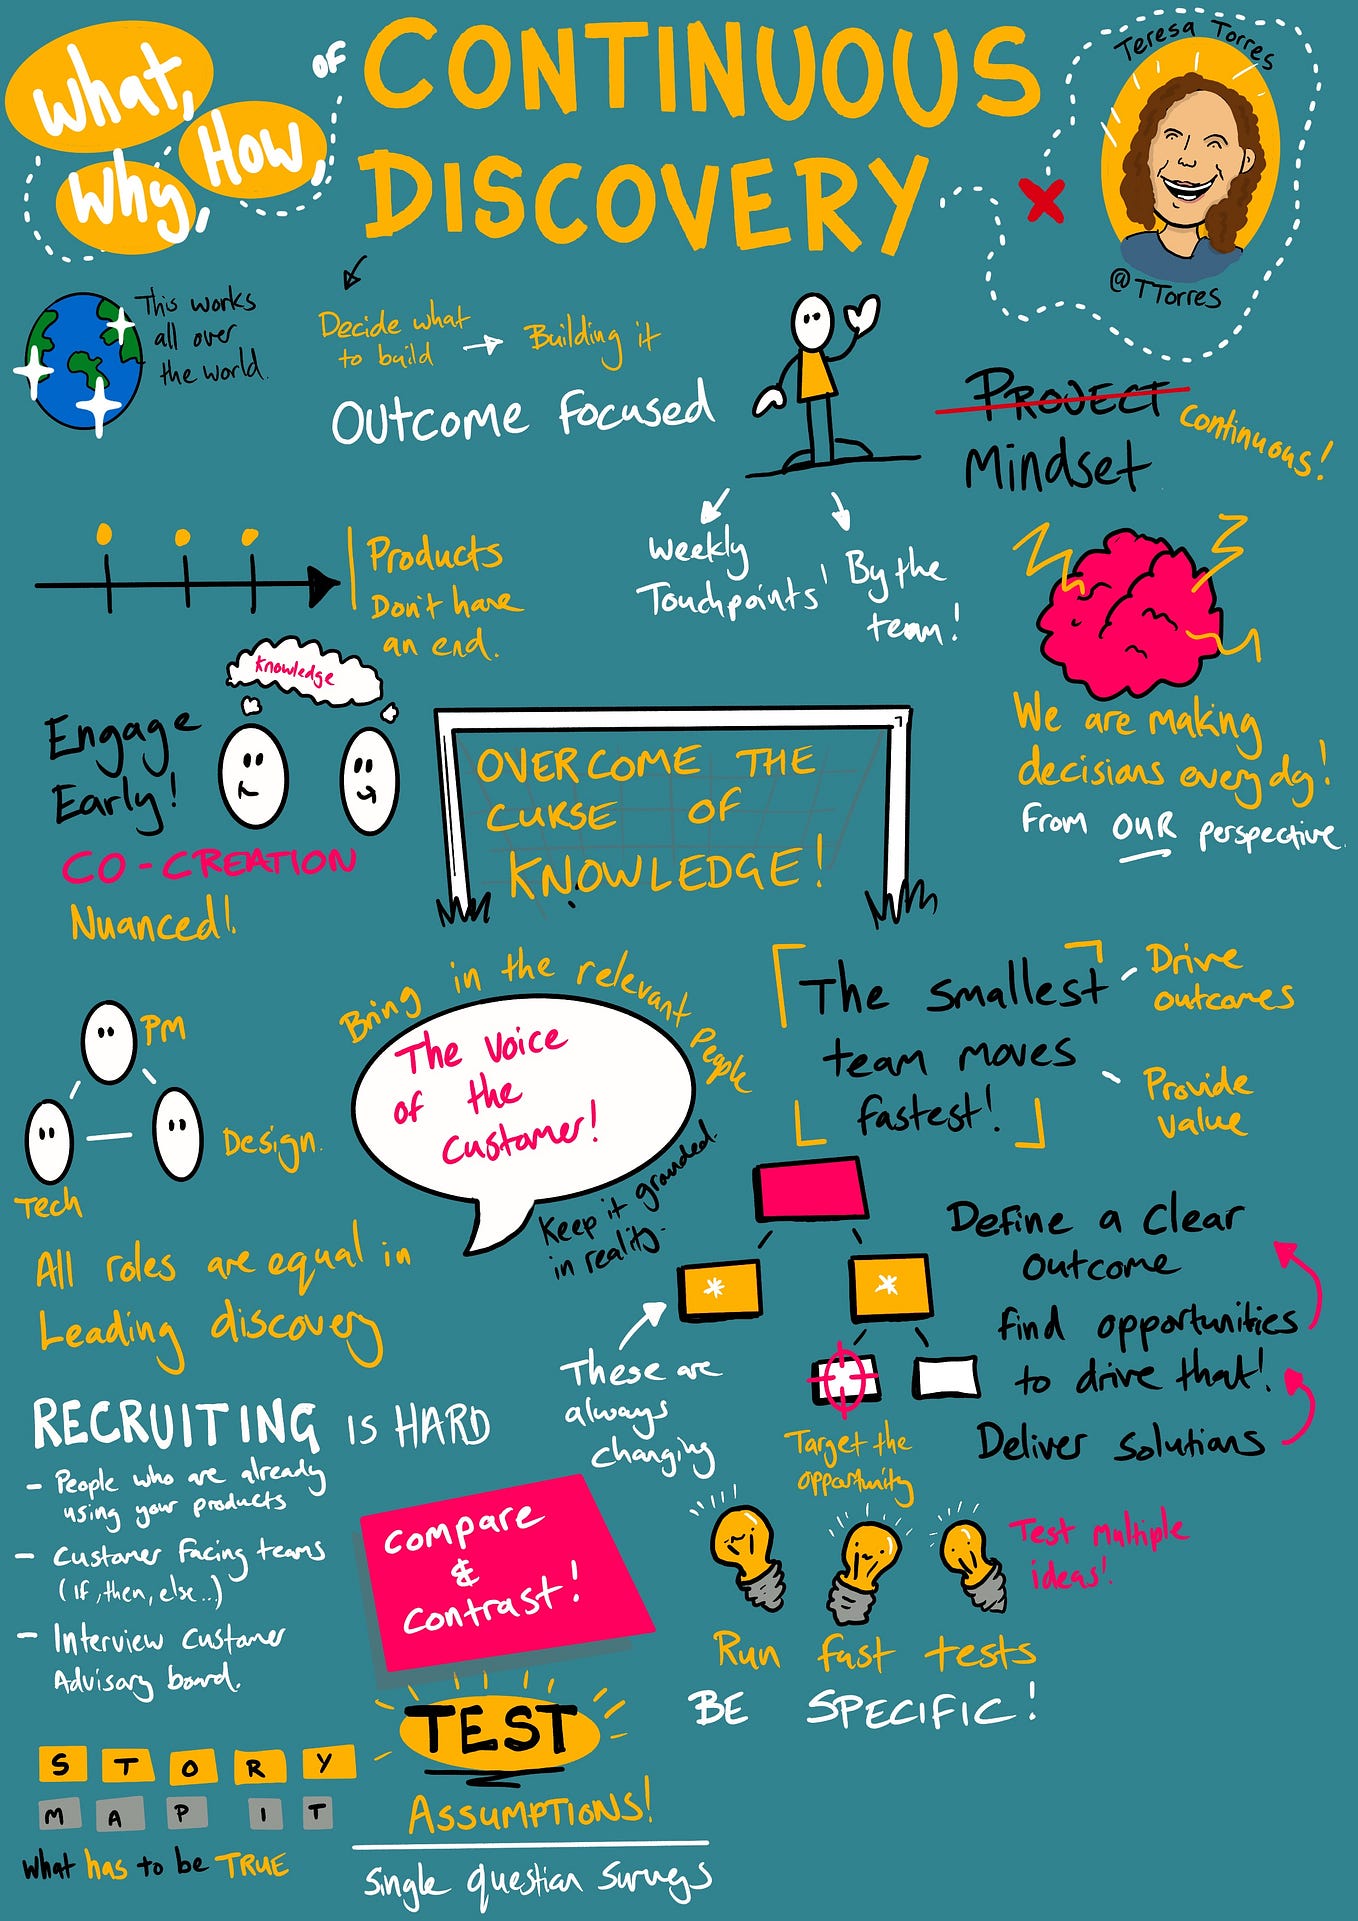 What,
Why,
How,
OF
CONTINUOUS
DISCOVERY
Teresa Torres
@TTorres
This works
all over
the world.
Decide what
to build
Building it
OUTCOME FOCUSED
PROJECT
Continuous!
Mindset
Weekly
Touchpoints
By the
team!
Products
Don't have
an end.
Knowledge
Engage
Early!
CO-CREATION
Nuanced!
OVERCOME THE
CURSE OF
KNOWLEDGE!
We are making
decisions everyday!
From OUR perspective.
PM
Design.
Tech
All roles are equal in
Leading discovery
Bring in the relevant People
The Voice
of the
Customer!
Keep it grounded
in reality.
The smallest
team moves
fastest!
Drive
outcomes
Provide
Value
Define a Clear
Outcome
find opportunities
to drive that!
Deliver Solutions
These are
always
changing
Target the
opportunity
RECRUITING IS HARD
- People who are already
using your products
- Customer facing teams
(If, then, else...)
- Interview Customer
Advisory board.
Compare
&
Contrast!
Test multiple
ideas!
Run fast tests
BE SPECIFIC!
STORY
MAP IT
What has to be TRUE
TEST
ASSUMPTIONS!
Single question Surveys